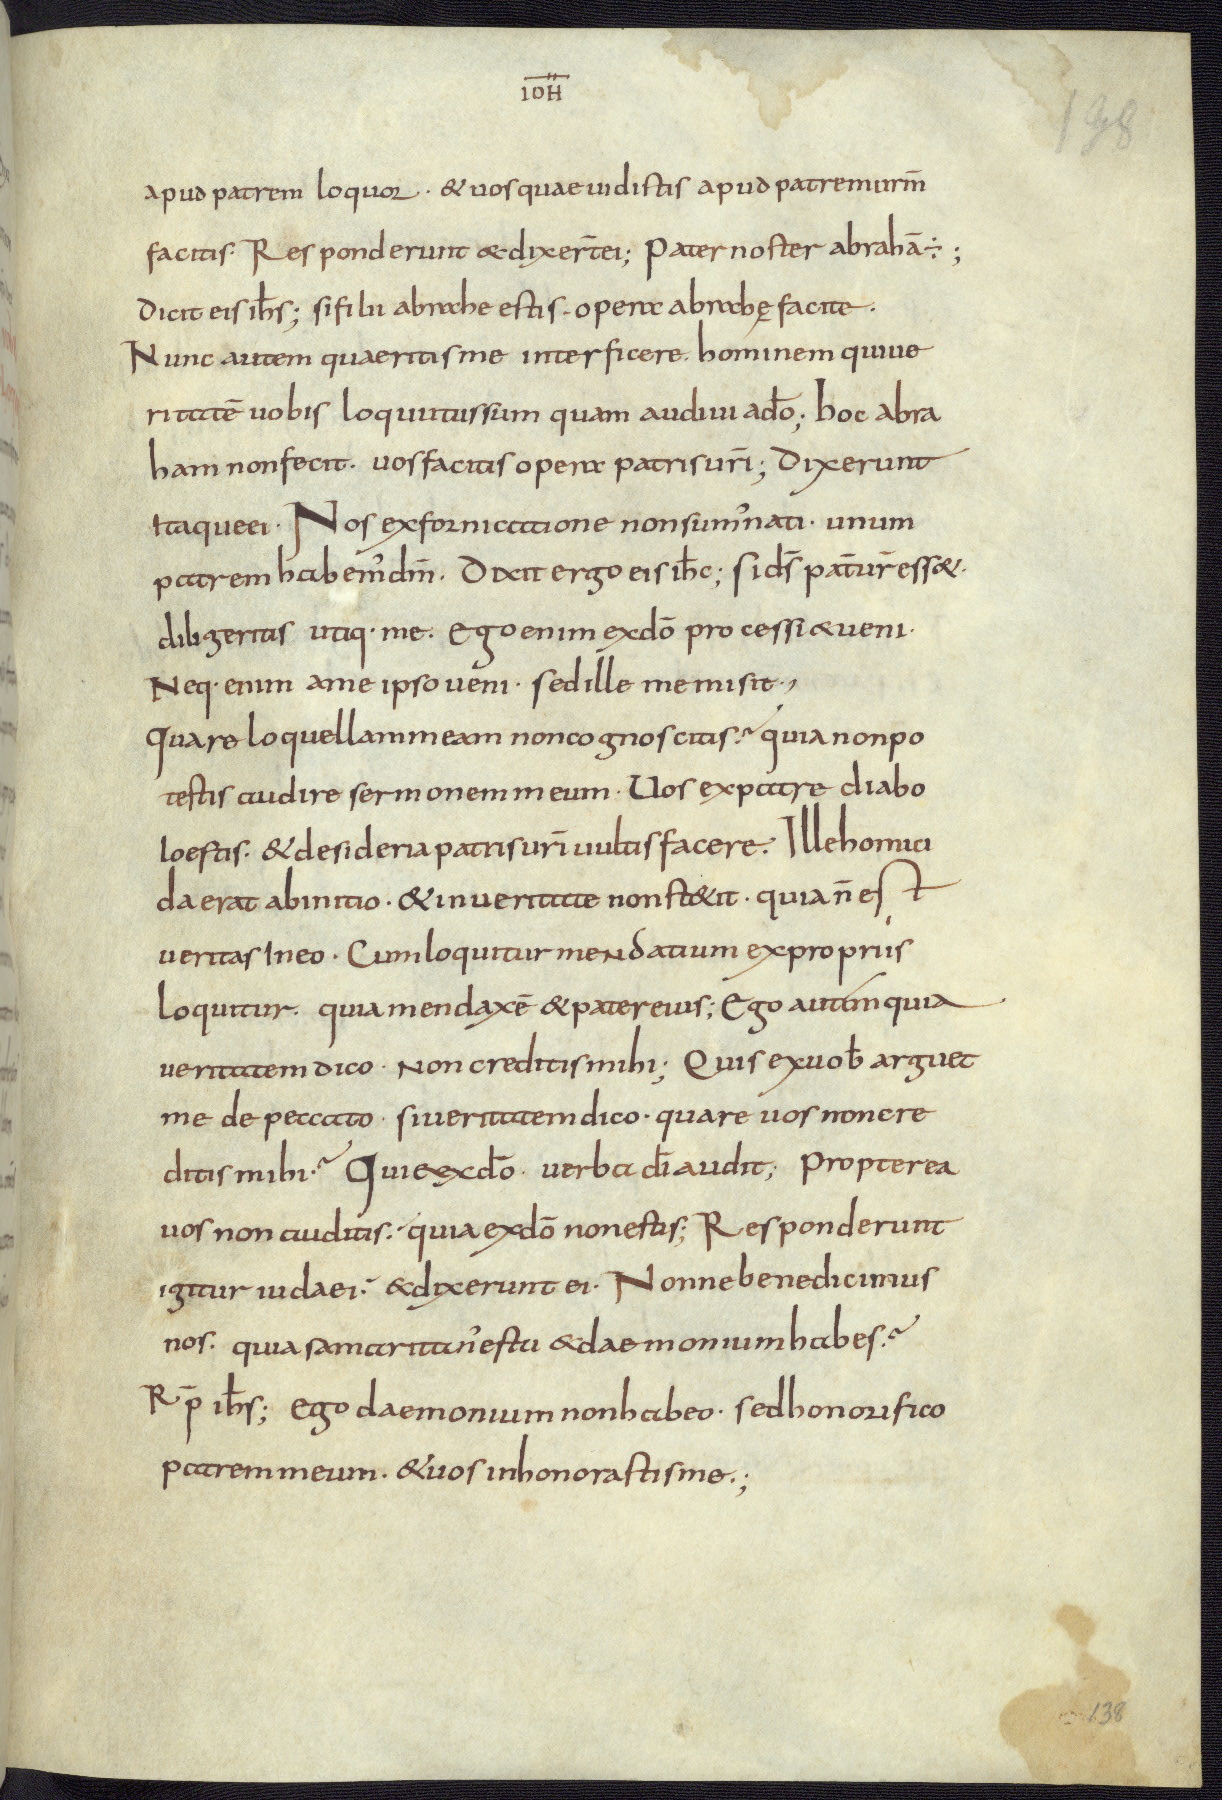 IOH̅
198
apud patrem loquor · & uos quae uidistis apud patrem ur̅m
facitis. Responderunt & dixer̅t ei; Pater noster abrahā ÷;
Dicit eis ih̅s; si filii abrahe estis · opera abrahę facite.
Nunc autem quaeritis me interficere. hominem qui ue
ritatē uobis loquutus sum quam audiui a do̅; hoc abra
ham non fecit. uos facitis opera patris ur̅i; Dixerunt
itaque ei · Nos ex fornicatione non sumʼ nati · unum
patrem habemʼ dm̅. Dixit ergo eis ih̅c; si ds̅ pat̅ ur̅ ess&.
diligeritis utiq· me. Ego enim ex do̅ processi & ueni.
Neq· enim a me ipso ueni. sed ille me misit.,
Quare loquellam meam non cognoscitis? quia non po
testis audire sermonem meum. Uos ex patre diabo
lo estis. & desideria patris ur̅i uultis facere. Ille homici
da erat ab initio · & in ueritate non st&it · quia n̅ est
ueritas In eo · Cum loquitur mendatium ex propriis
loquitur. quia mendax ē & pater eius; Ego autem quia
ueritatem dico · Non creditis mihi; Quis ex uob̅ arguet
me de peccato · si ueritatem dico · quare uos non cre
ditis mihi? Qui ex do̅ · uerba di̅ audit; Propterea
uos non auditis? quia ex do̅ non estis; Responderunt
igitur iudaei. & dixerunt ei. Nonne benedicimus
nos. quia samaritanʼ es tu & daemonium habes?
Rp̅ ih̅s; Ego daemonium non habeo · sed honorifico
patrem meum. & uos inhonorastis me.;
138